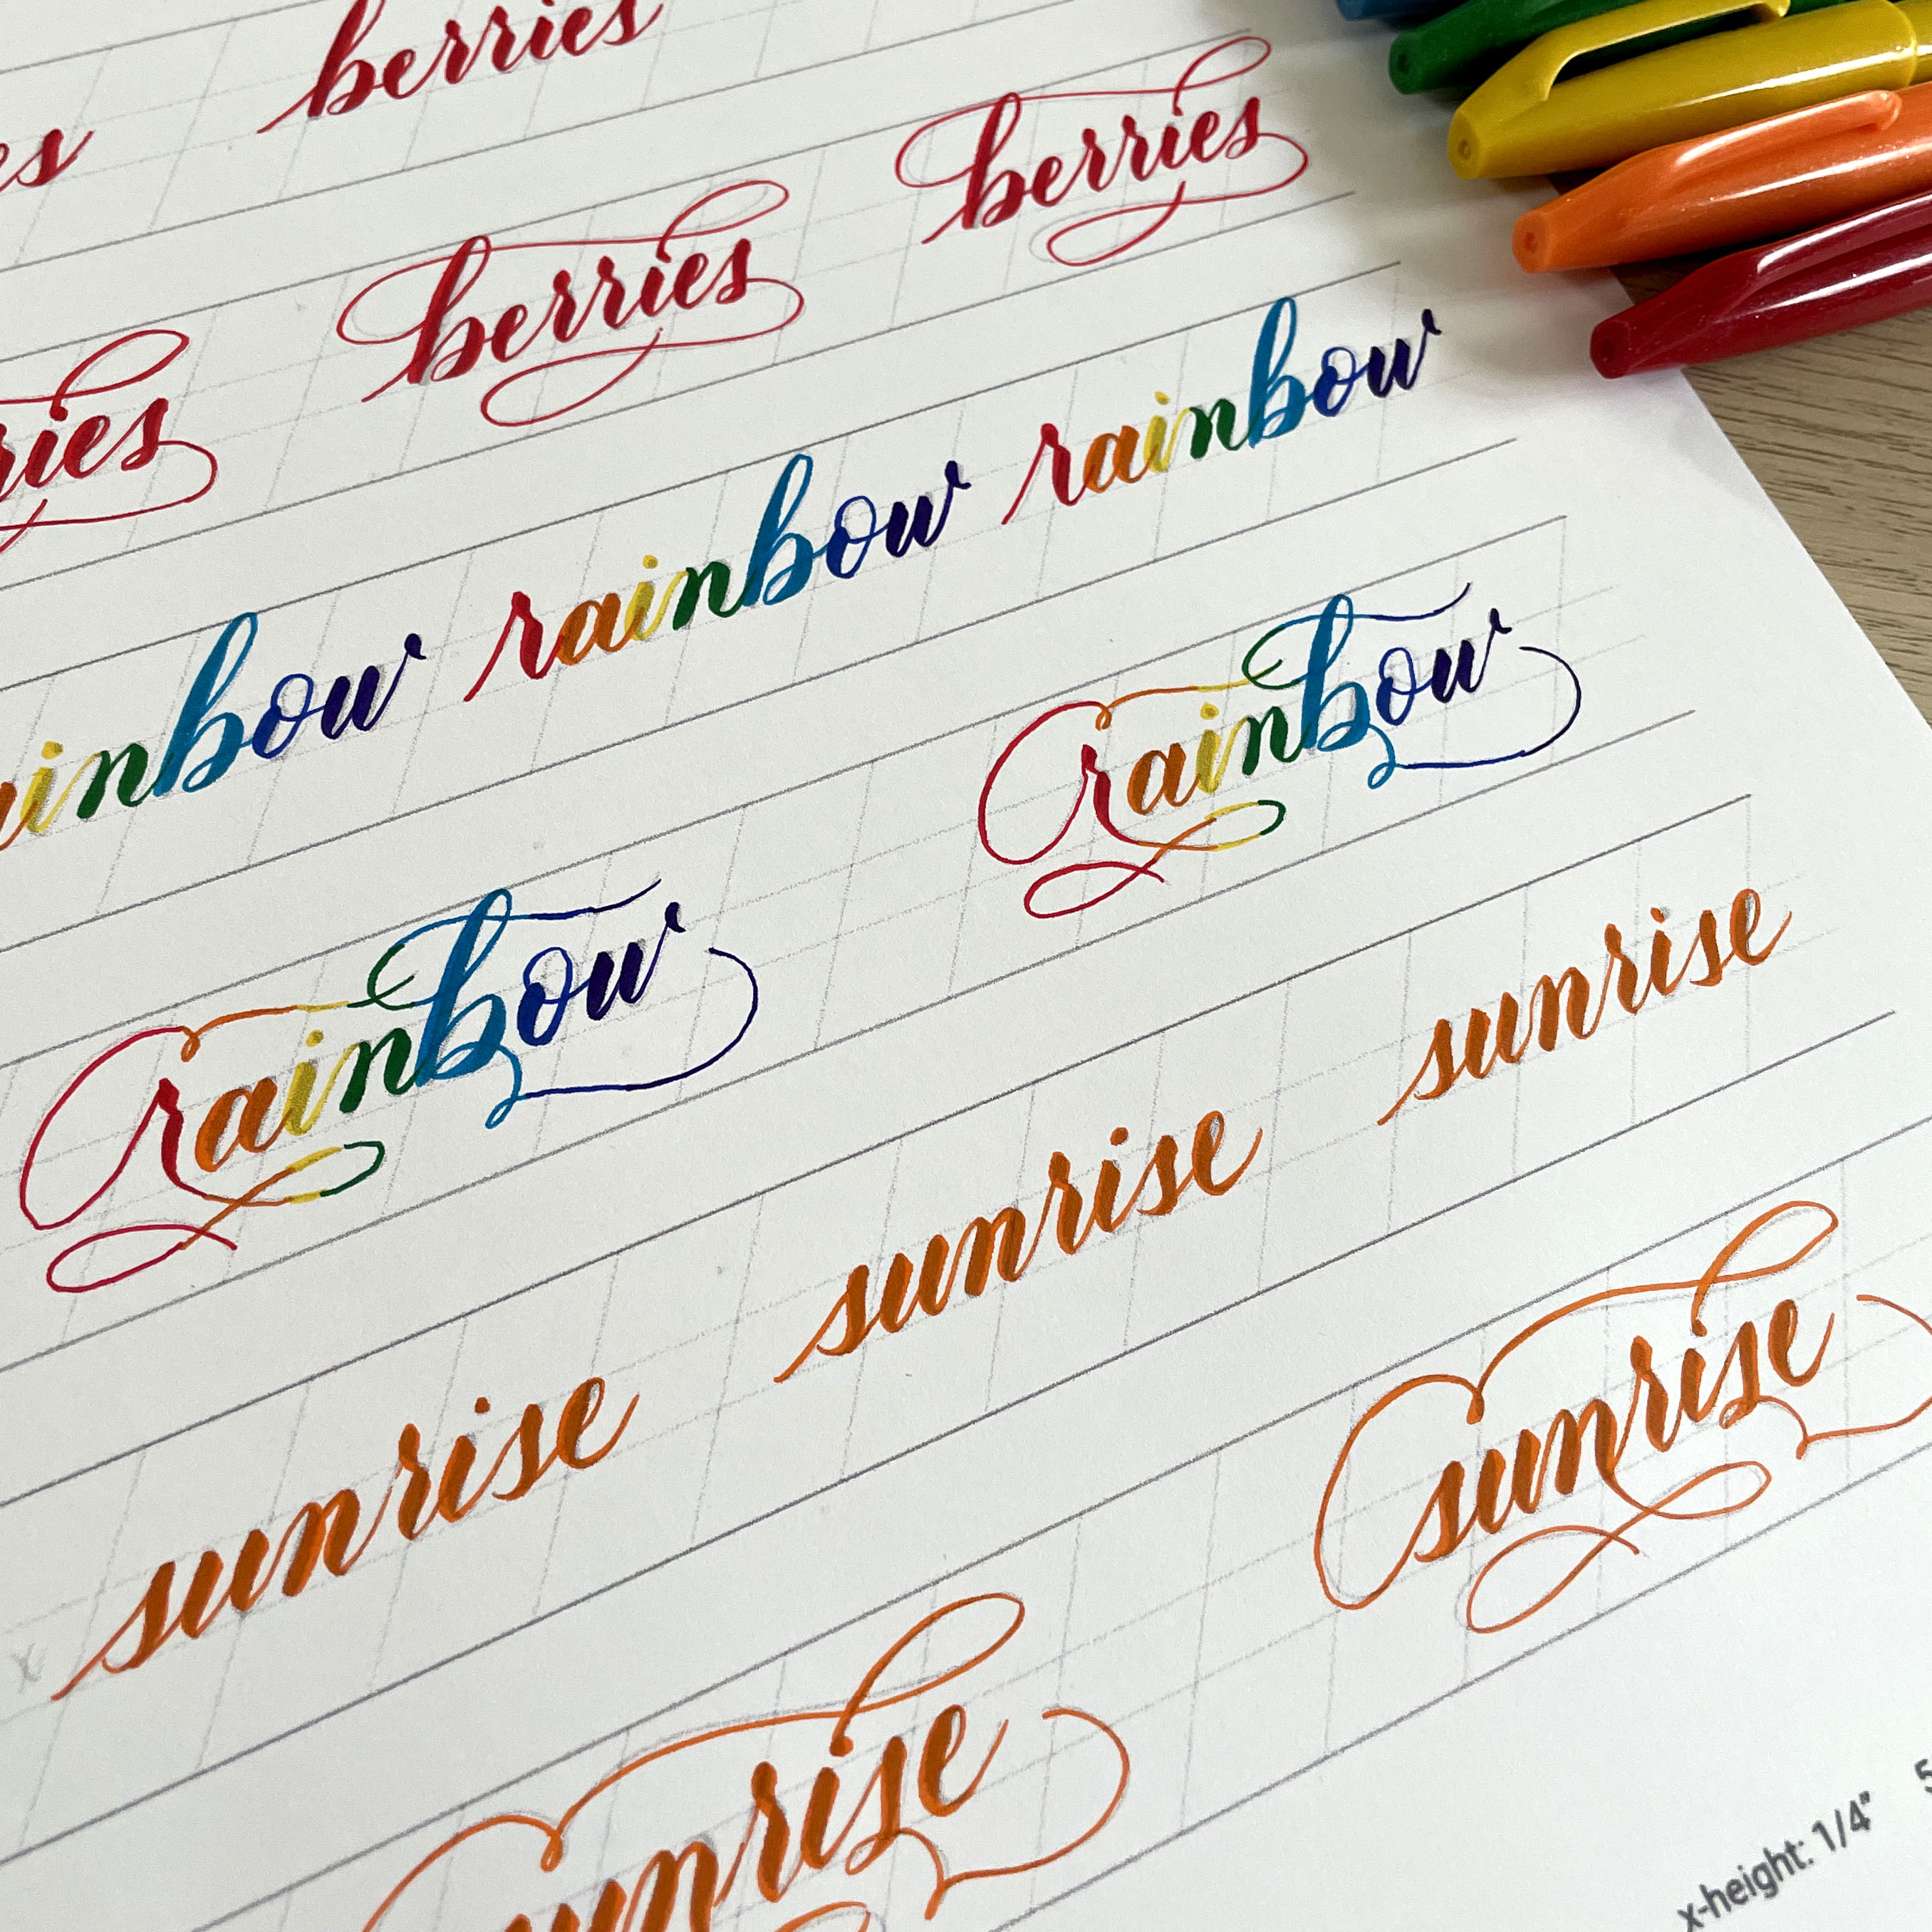 es berries
ries berries berries
ainbow rainbow rainbow
rainbow rainbow
sunrise sunrise sunrise
sunrise sunrise
x
x-height: 1/4" 5